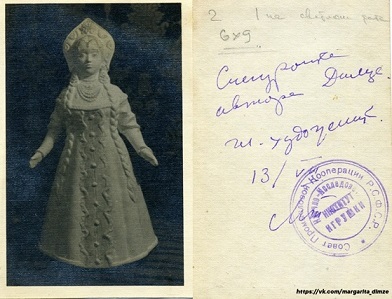 2 1 на светлом фоне
6х9
Снегурочка
автора Димзе
гл. художник
13/VI
Совет Промысловой Кооперации Р.С.Ф.С.Р.
ИНСТИТУТ
ИГРУШКИ
https://vk.com/margarita_dimze